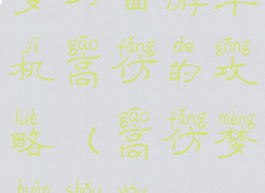 jī gāo fǎng de gōng
机高仿的攻
lüè gāo fǎng mèng
略（高仿梦
huàn shǒu yóu